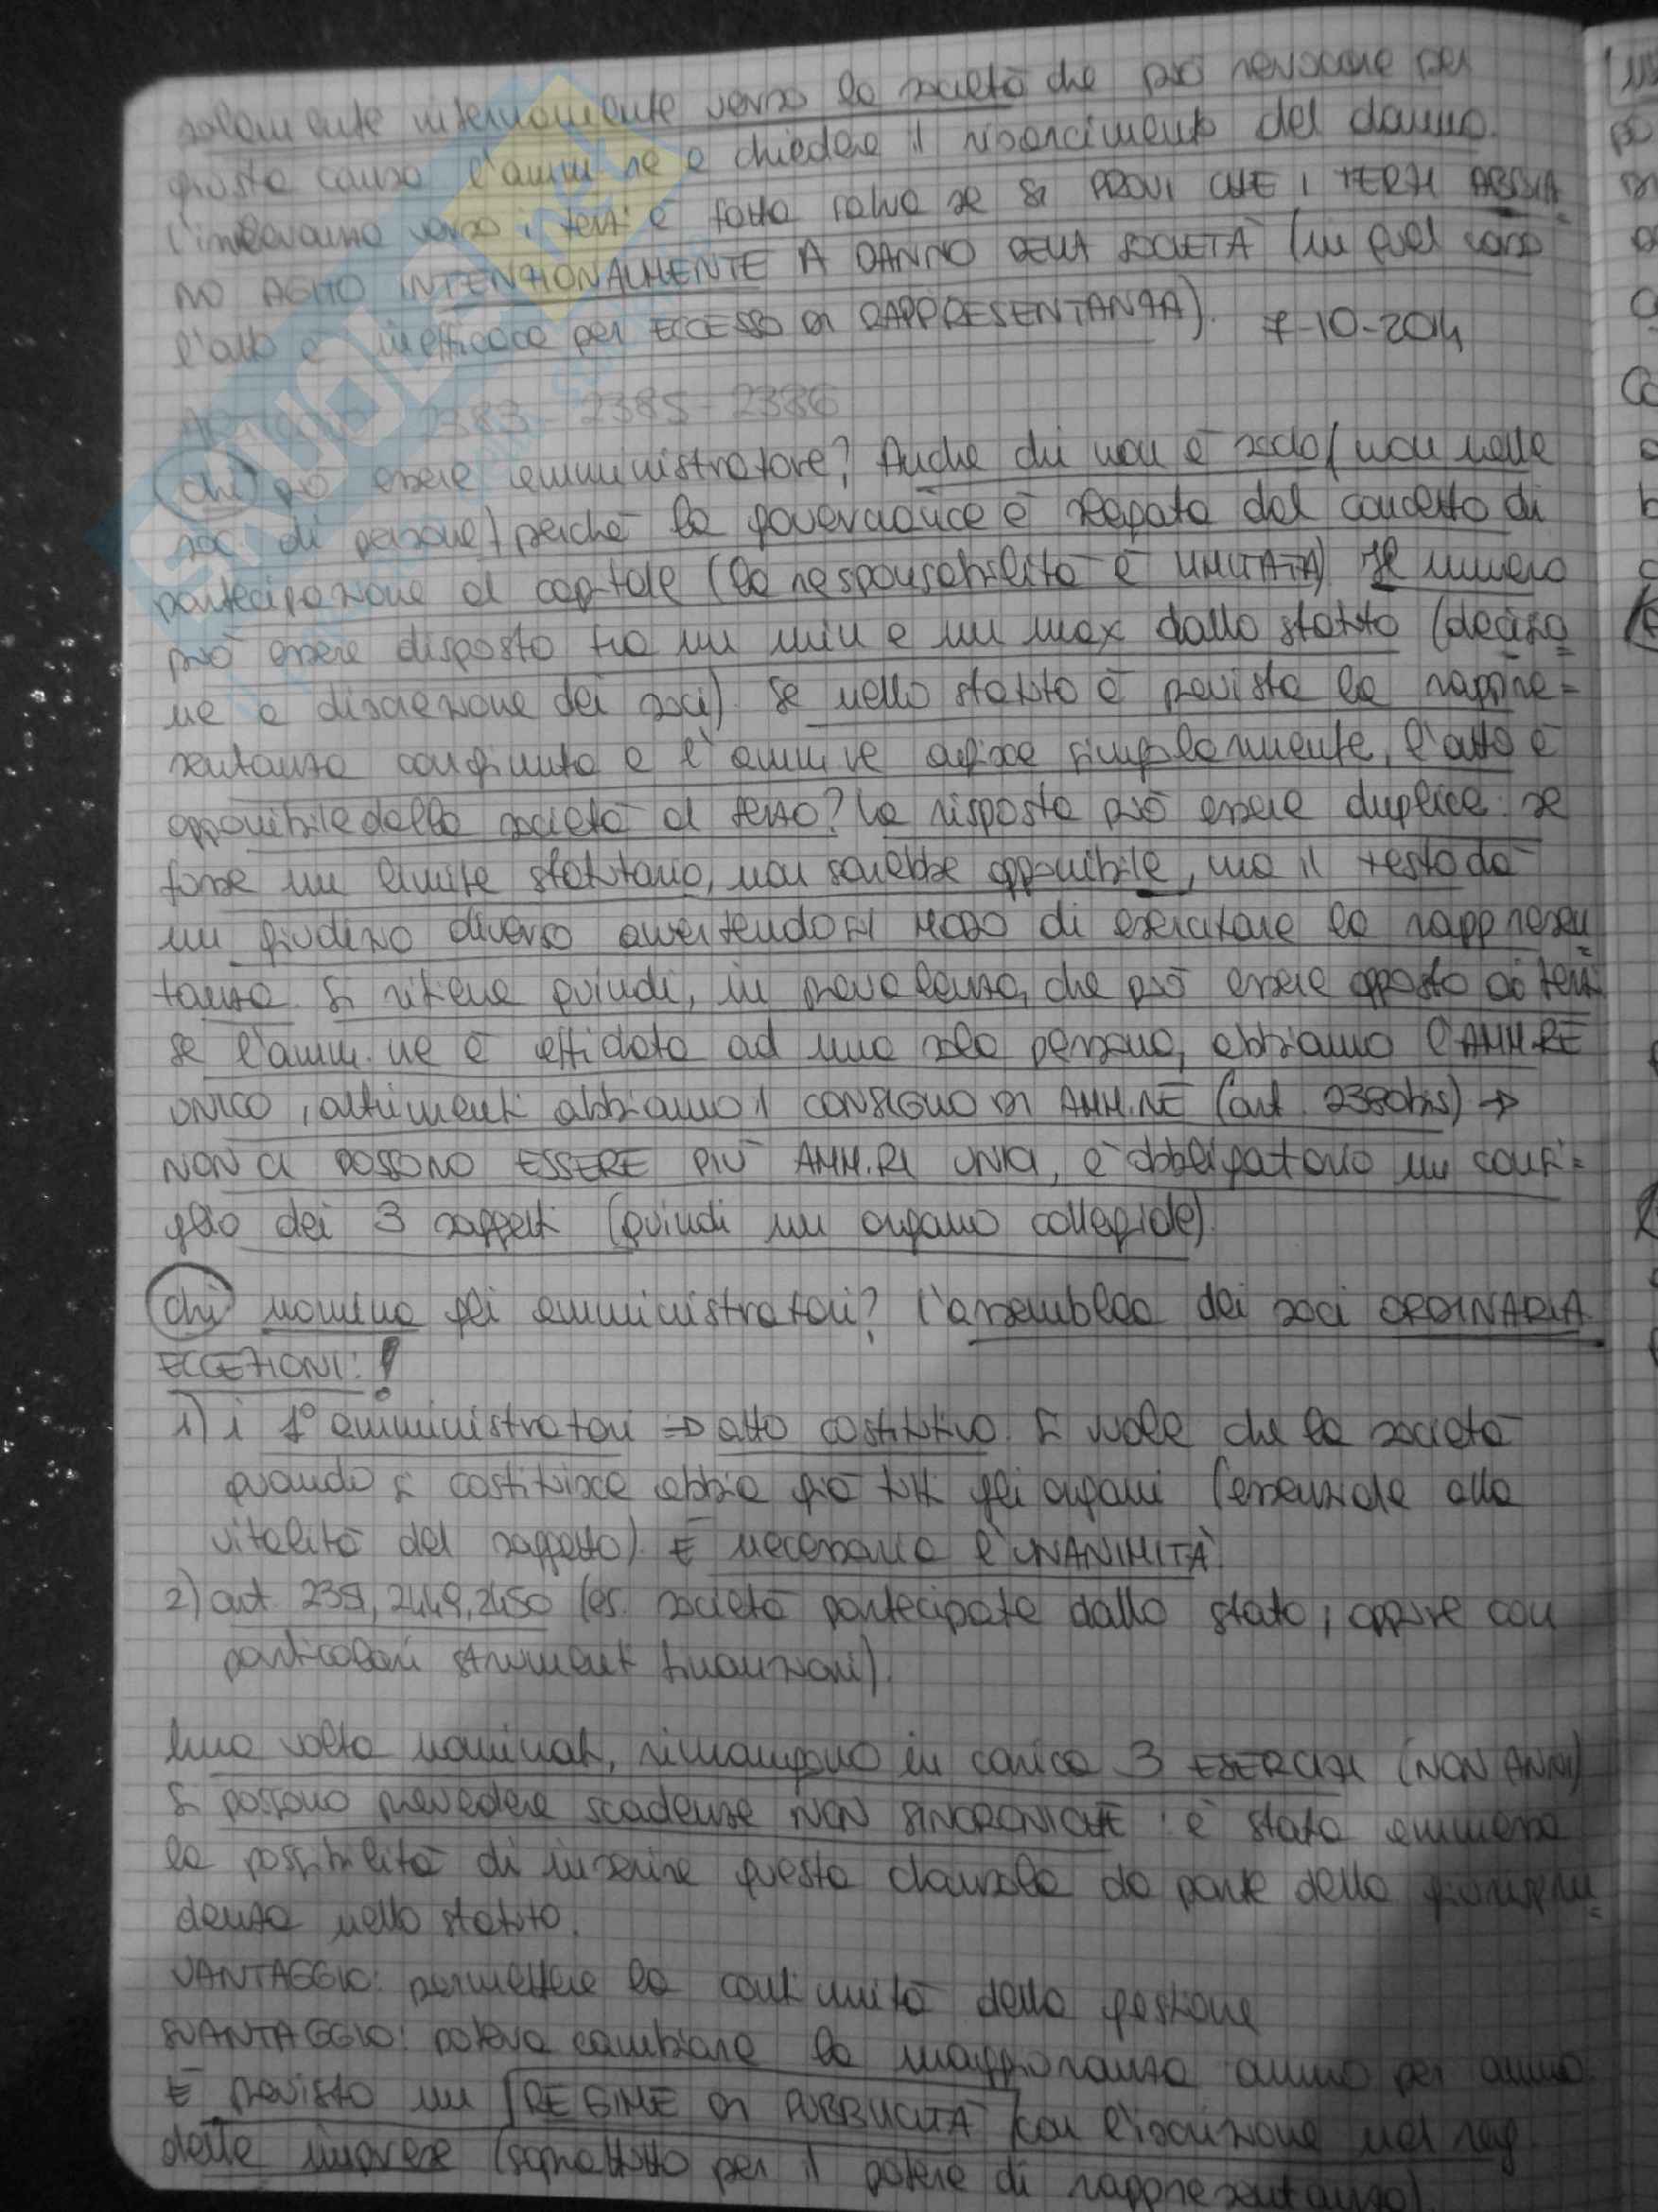 solamente internamente verso la società che può revocare per
giusta causa l'amm.re e chiedere il risarcimento del danno.
l'irrilevanza verso i terzi è fatta salva se si PROVI CHE I TERZI ABBIA=
NO AGITO INTENZIONALMENTE A DANNO DELLA SOCIETÀ (in quel caso
l'atto è inefficace per ECCESSO DI RAPPRESENTANZA). 7-10-2014
ARTICOLI 2383-2385-2386
chi può essere amministratore? Anche chi non è socio (non nelle
soc. di persone) perché la governance è slegata dal concetto di
partecipazione al capitale (la responsabilità è LIMITATA). Il numero
può essere disposto tra un min e un max dallo statuto (decisio=
ne a discrezione dei soci). Se nello statuto è prevista la rappre=
sentanza congiunta e l'amm.re agisce singolarmente, l'atto è
opponibile dalla società al terzo? La risposta può essere duplice: se
fosse un limite statutario, non sarebbe opponibile, ma il testo dà
un giudizio diverso avvertendo il MODO di esercitare la rappresen=
tanza. Si ritiene quindi, in prevalenza, che può essere opposto ai terzi
se l'amm.ne è affidata ad una sola persona, abbiamo l'AMM.RE
UNICO, altrimenti abbiamo il CONSIGLIO DI AMM.NE (art. 2380bis) →
NON CI POSSONO ESSERE PIÙ AMM.RI UNICI, è obbligatorio un consi=
glio dei 3 soggetti (quindi un organo collegiale).
chi nomina gli amministratori? l'assemblea dei soci ORDINARIA
ECCEZIONI: !
1) i 1° amministratori ⇒ atto costitutivo. Si vuole che la società
quando si costituisce abbia già tutti gli organi (essenziale alla
vitalità del soggetto). È necessaria l'UNANIMITÀ.
2) art. 2351, 2449, 2450 (es. società partecipate dallo stato, oppure con
particolari strumenti finanziari).
Una volta nominati, rimangono in carica 3 ESERCIZI (NON ANNI)
Si possono prevedere scadenze NON SINCRONICHE: è stata ammessa
la possibilità di inserire questa clausola da parte della giurispru=
denza nello statuto.
VANTAGGIO: permettere la continuità della gestione
SVANTAGGIO: poteva cambiare la maggioranza anno per anno.
È previsto un REGIME DI PUBBLICITÀ con l'iscrizione nel reg.
delle imprese (soprattutto per il potere di rappresentanza)